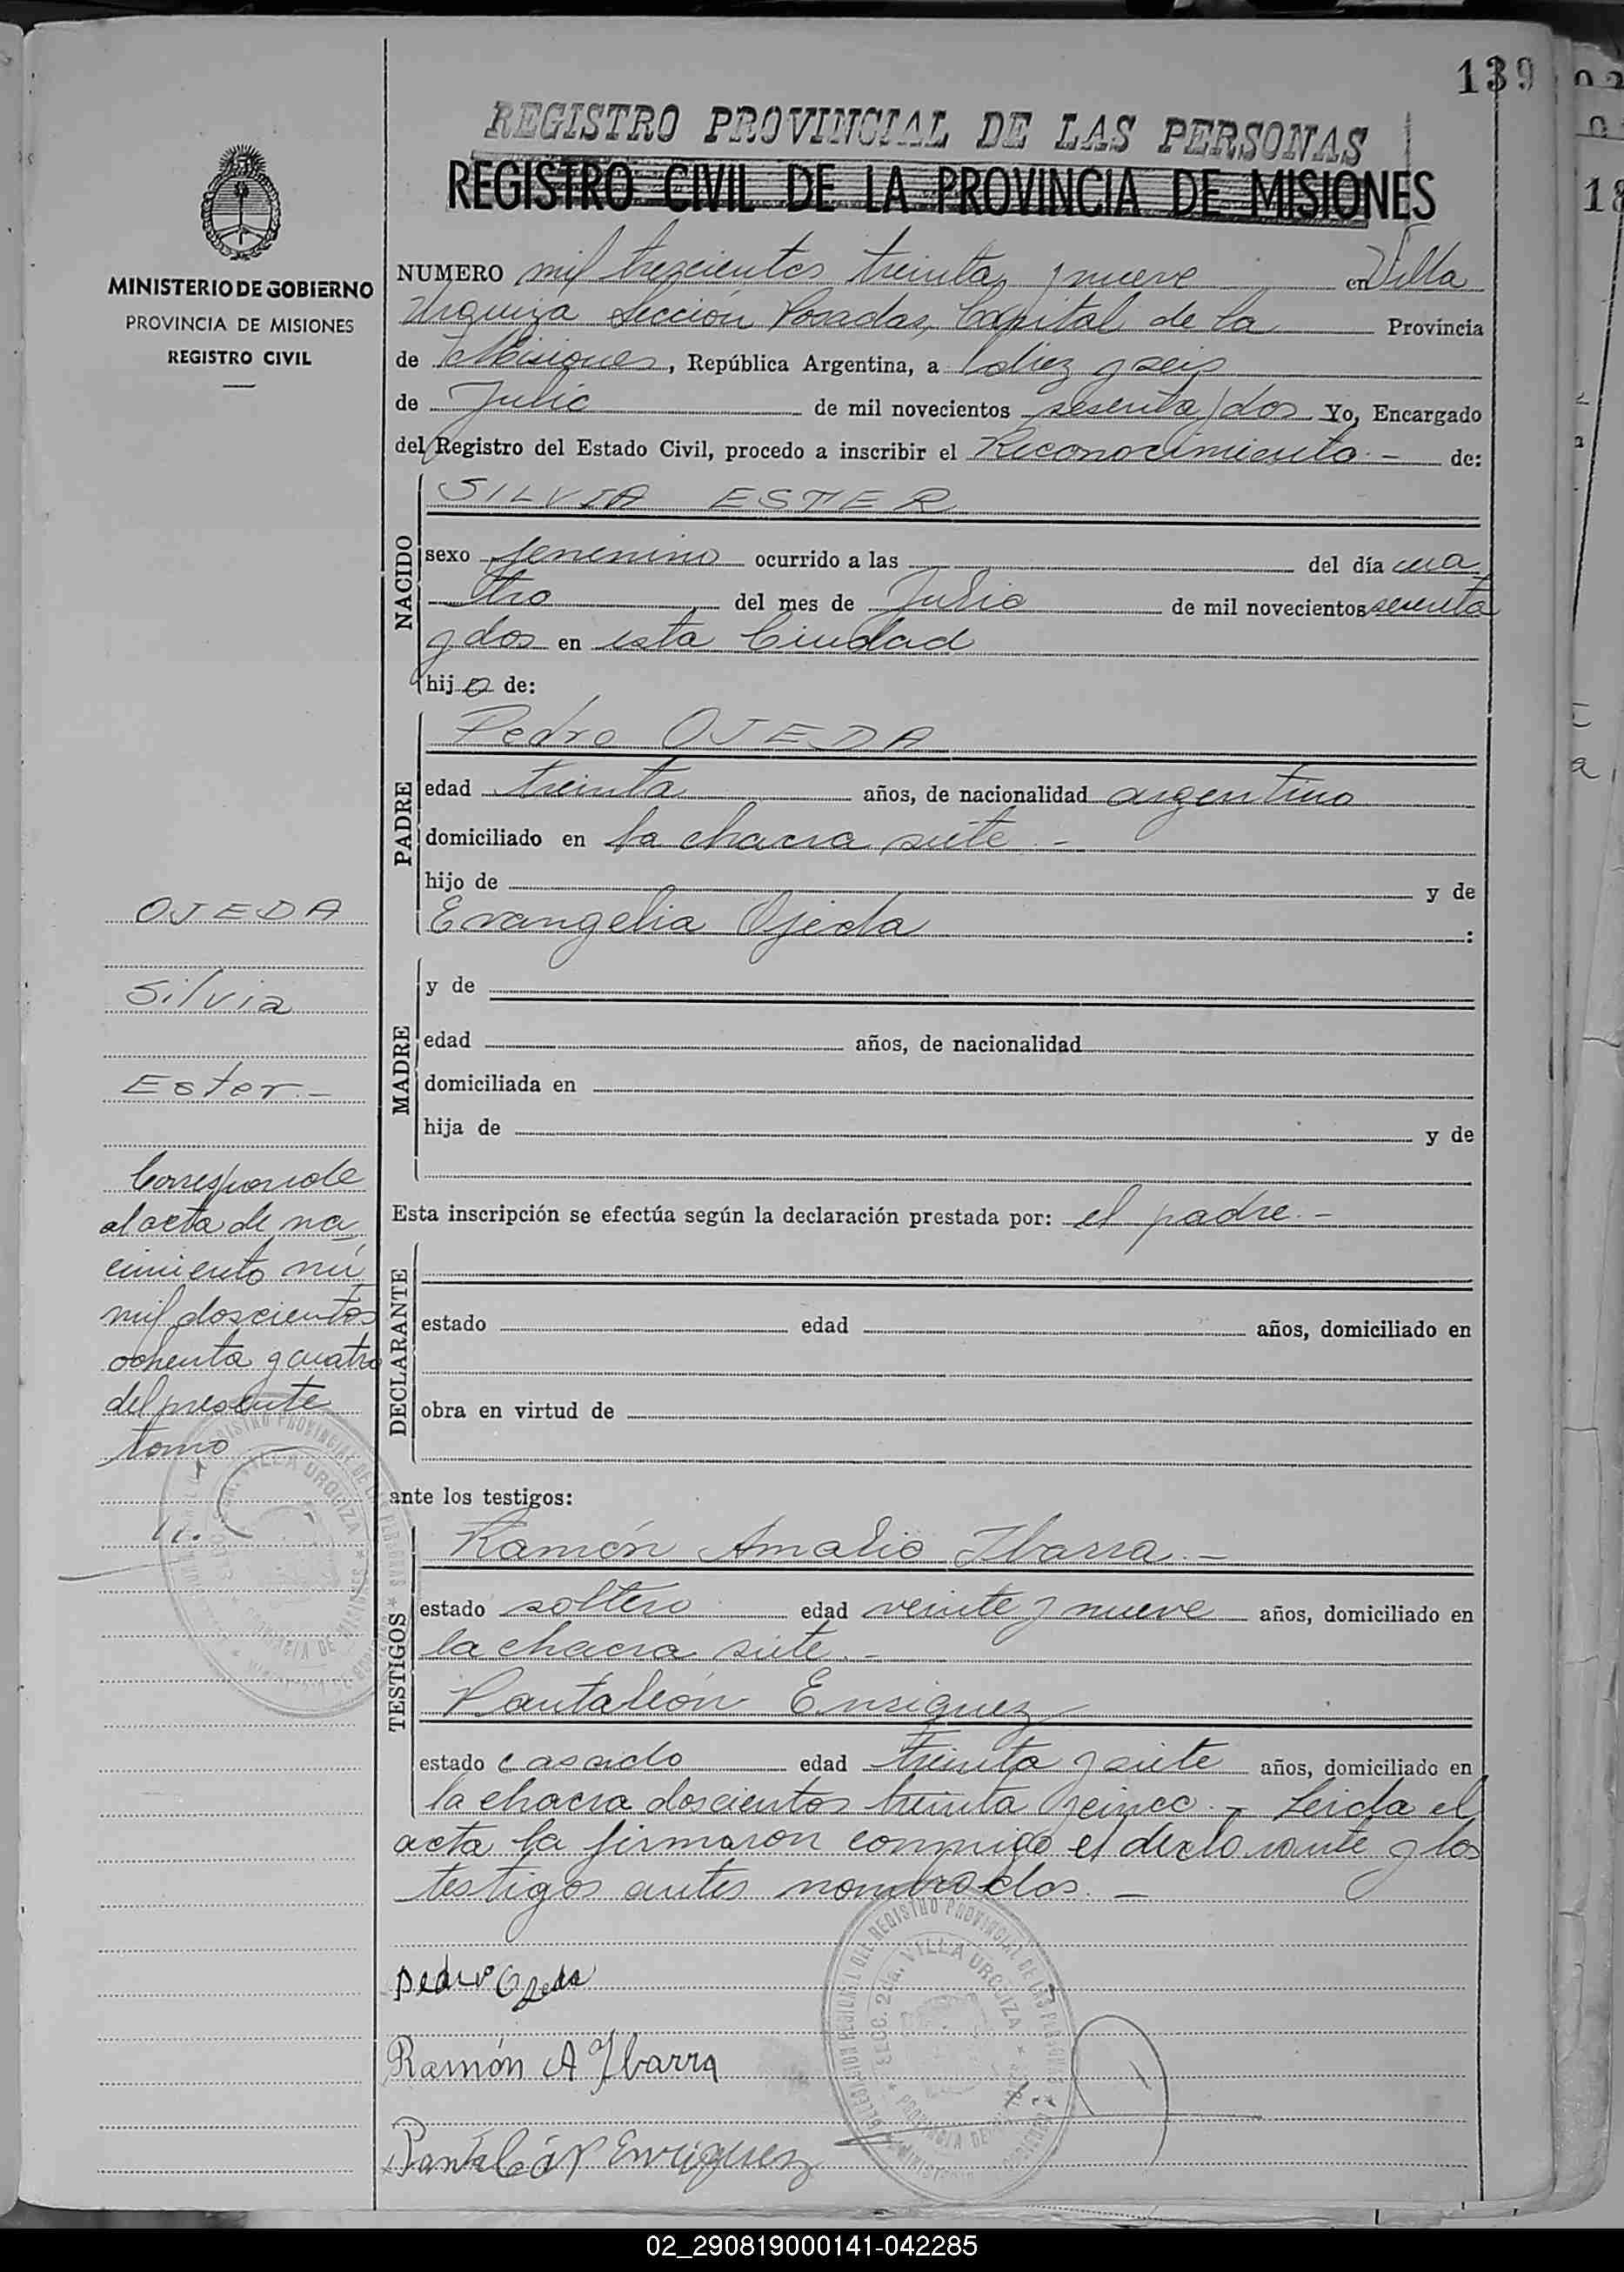 139
REGISTRO PROVINCIAL DE LAS PERSONAS
REGISTRO CIVIL DE LA PROVINCIA DE MISIONES
MINISTERIO DE GOBIERNO
PROVINCIA DE MISIONES
REGISTRO CIVIL
NUMERO mil trescientos treinta y nueve en Villa
Urquiza Sección Posadas, Capital de la Provincia
de Misiones, República Argentina, a diez y seis
de Julio de mil novecientos sesenta y dos Yo, Encargado
del Registro del Estado Civil, procedo a inscribir el Reconocimiento.- de:
NACIDO
SILVIA ESTER
sexo femenino ocurrido a las del día cua
tro del mes de Julio de mil novecientos sesenta
y dos en esta Ciudad
hij a de:
PADRE
Pedro OJEDA
edad treinta años, de nacionalidad argentino
domiciliado en la chacra siete.-
hijo de y de
Evangelia Ojeda :
MADRE
y de
edad años, de nacionalidad
domiciliada en
hija de y de
Esta inscripción se efectúa según la declaración prestada por: el padre.-
DECLARANTE
estado edad años, domiciliado en
obra en virtud de
ante los testigos:
TESTIGOS
Ramón Amalio Ibarra.-
estado soltero edad veinte y nueve años, domiciliado en
la chacra siete.-
Pantaleón Enriquez
estado casado edad treinta y siete años, domiciliado en
la chacra doscientos treinta y cinco.- Leida el
acta la firmaron conmigo el declarante y los
testigos antes nombrados.-
Pedro Ojeda
Ramón A Ibarra
Pantaleón Enriquez
OJEDA
Silvia
Ester.-
Corresponde
al acta de na
cimiento nú
mil doscientos
ochenta y cuatro
del presente
tomo.-
DELEGACION REGIONAL DEL REGISTRO PROVINCIAL DE LAS PERSONAS
SECC. 2da. VILLA URQUIZA
PROVINCIA DE MISIONES
02_290819000141-042285